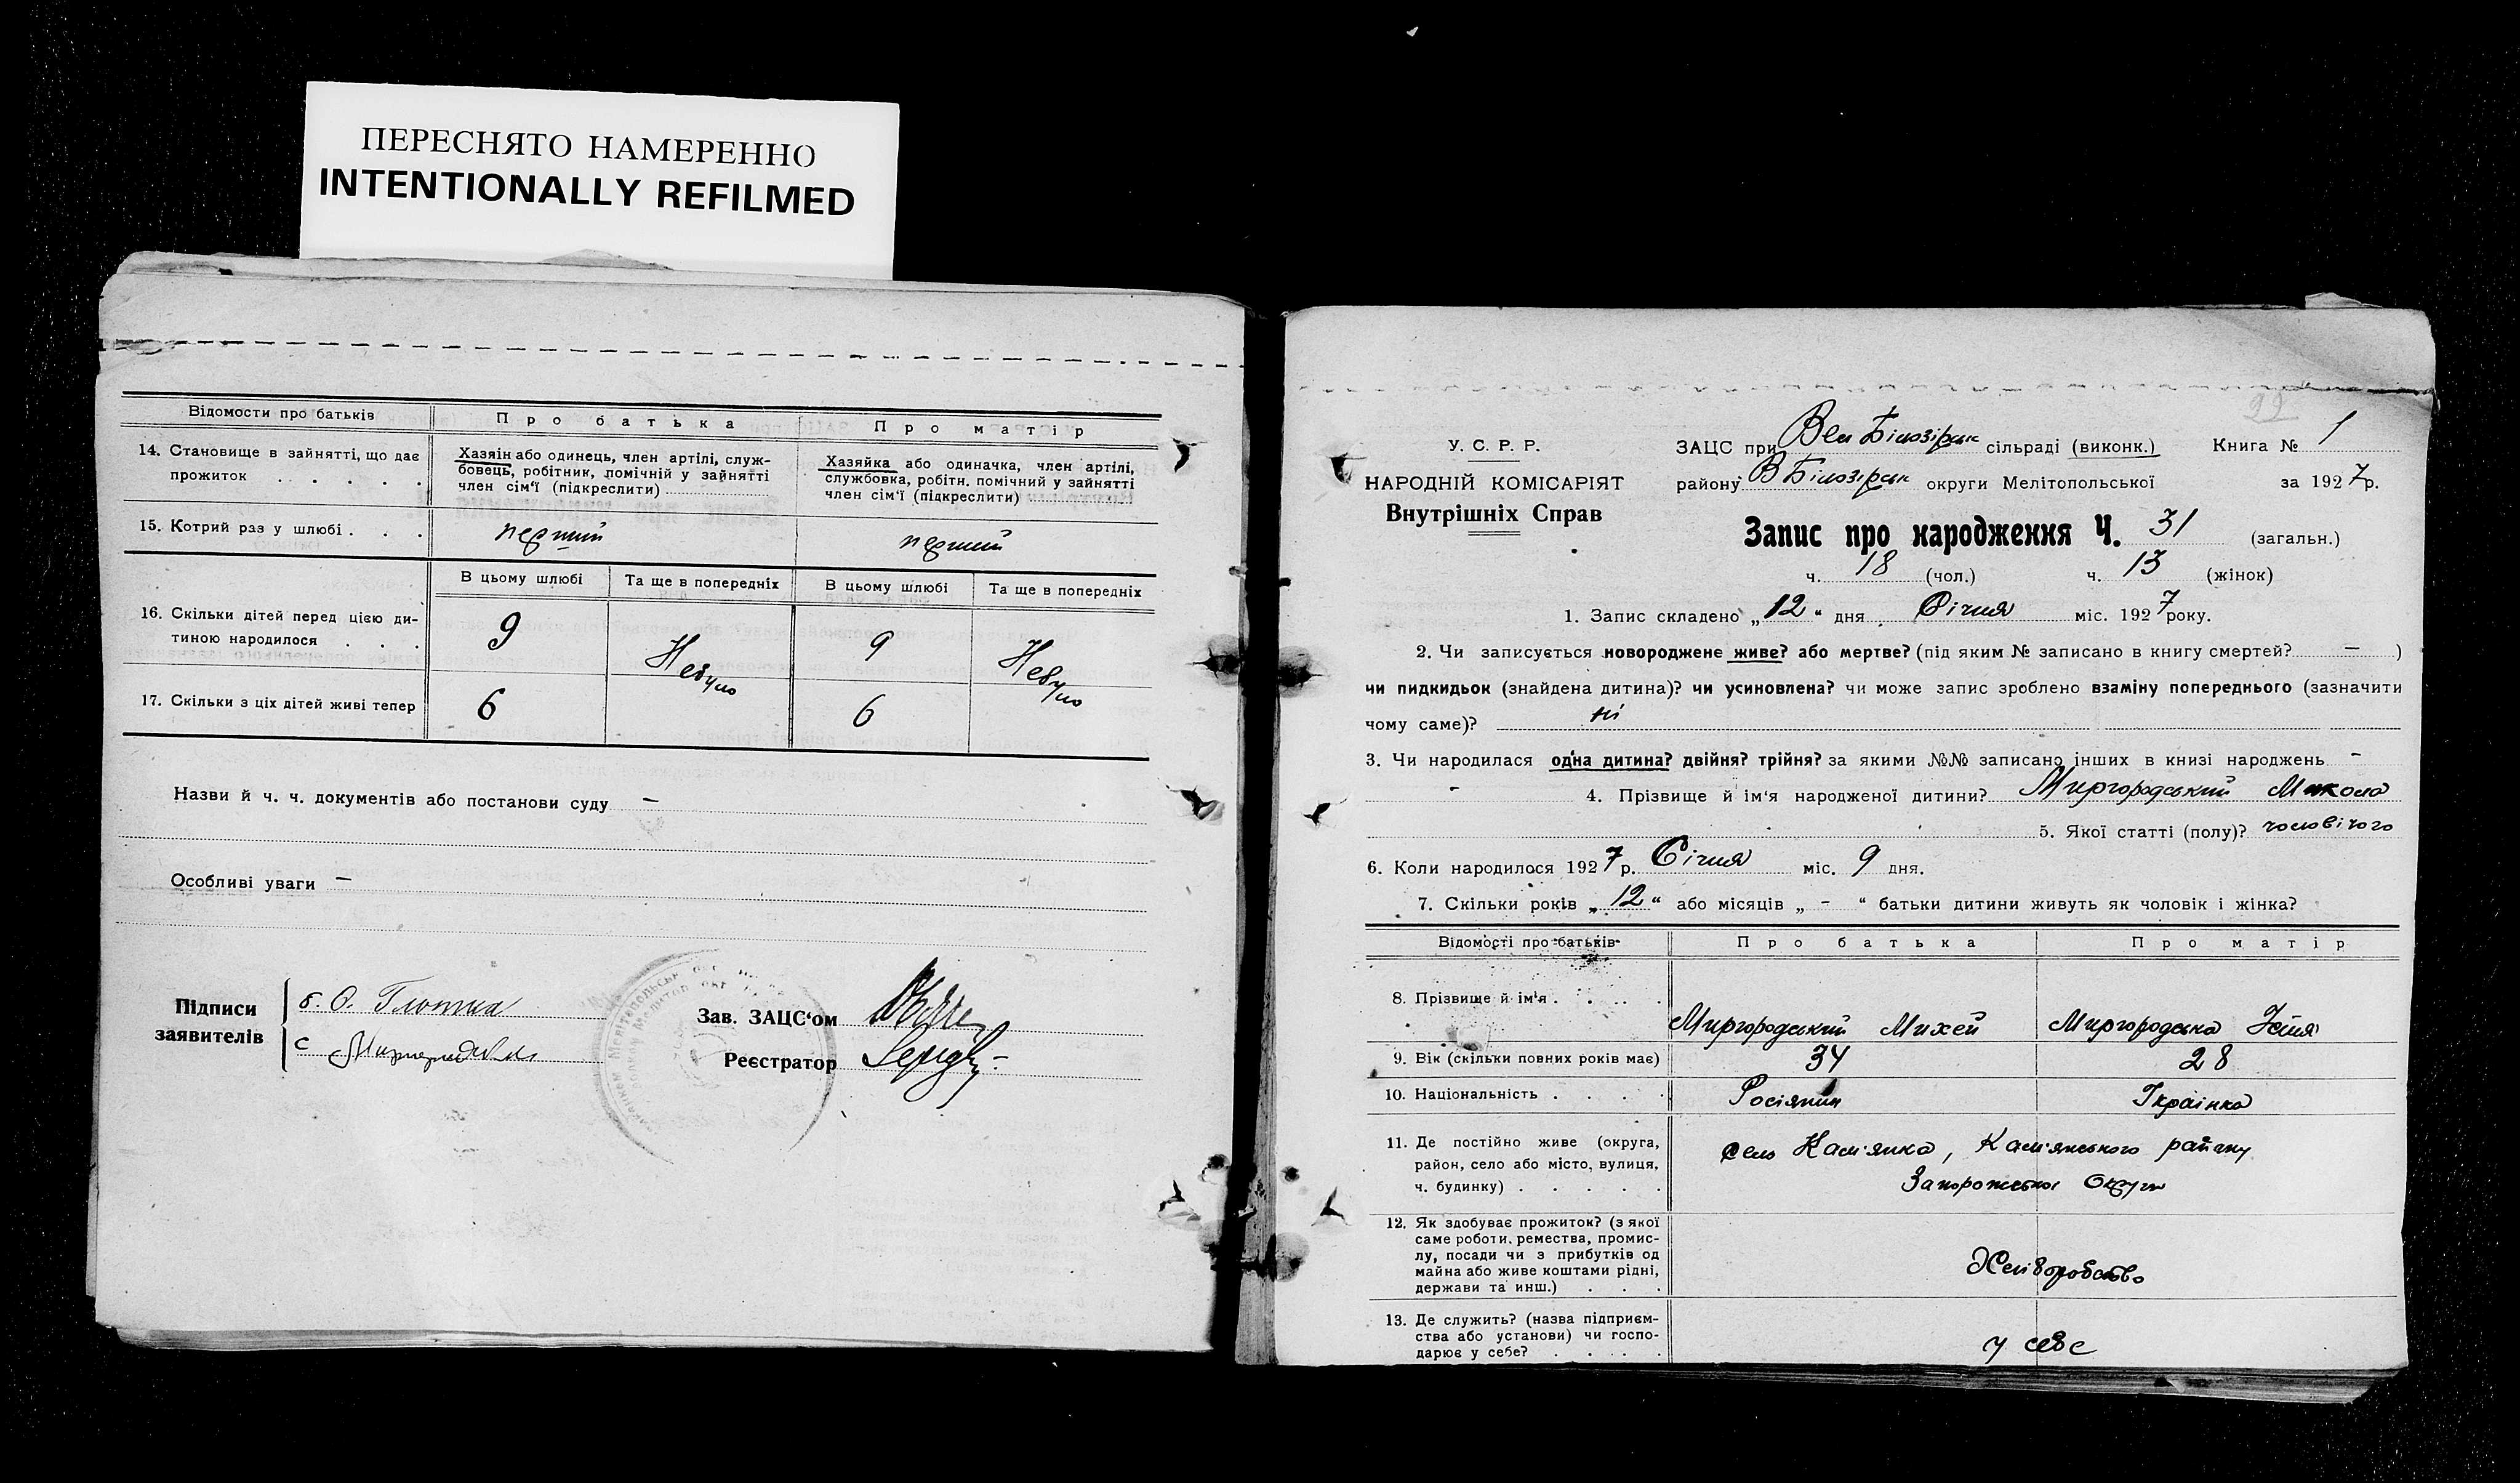 ПЕРЕСНЯТО НАМЕРЕННО
INTENTIONALLY REFILMED
Відомости про батьків Про батька Про матір
14. Становище в зайнятті, що дає
прожиток . . . . .
Хазяін або одинець, член артілі, служ-
бовець, робітник, помічній у зайнятті
член сім‘ї (підкреслити)
Хазяйка або одиначка, член артілі,
службовка, робітн. помічний у зайнятті
член сім‘ї (підкреслити)
15. Котрий раз у шлюбі . . . перший перший
В цьому шлюбі Та ще в попередніх В цьому шлюбі Та ще в попередніх
16. Скільки дітей перед цією ди-
тиною народилося . . . 9 Небуло 9 Небуло
17. Скільки з ціх дітей живі тепер 6 6
Назви й ч. ч. документів або постанови суду —
Особливі уваги —
Підписи
заявителів
Зав. ЗАЦС‘ом
Реєстратор
У. С. Р. Р.
НАРОДНІЙ КОМІСАРІЯТ
Внутрішніх Справ
ЗАЦС при Вел Білозірськ сільраді (виконк.) Книга № 1
району В Білозірськ округи Мелітопольської за 1927р.
Запис про народження Ч. 31 (загальн.)
ч. 18 (чол.) ч. 13 (жінок)
1. Запис складено „12“ дня Січня міс. 1927 року.
2. Чи записується новороджене живе? або мертве? (під яким № записано в книгу смертей? — )
чи пидкидьок (знайдена дитина)? чи усиновлена? чи може запис зроблено взаміну попереднього (зазначити
чому саме)? ні
3. Чи народилася одна дитина? двійня? трійня? за якими №№ записано інших в книзі народжень -
- 4. Прізвище й ім‘я народженої дитини? Миргородський Микола
5. Якої статті (полу)? чоловічого
6. Коли народилося 1927р. Січня міс. 9 дня.
7. Скільки років „12“ або місяців „ - “ батьки дитини живуть як чоловік і жінка?
Відомості про батьків Про батька Про матір
8. Прізвище й ім‘я . . . . Миргородський Михей Миргородська
9. Вік (скільки повних років має) 34 28
10. Національність . . . . Росіянин Українка
11. Де постійно живе (округа,
район, село або місто, вулиця,
ч. будинку) . . . . .
село Кам‘янка, Кам‘янського району
Запорожської Округи
12. Як здобуває прожиток? (з якої
саме роботи, ремества, промис-
лу, посади чи з прибутків од
майна або живе коштами рідні,
держави та инш.) . . .
Хліборобство
13. Де служить? (назва підприєм-
ства або установи) чи госпо-
дарює у себе? . . . .
у себе